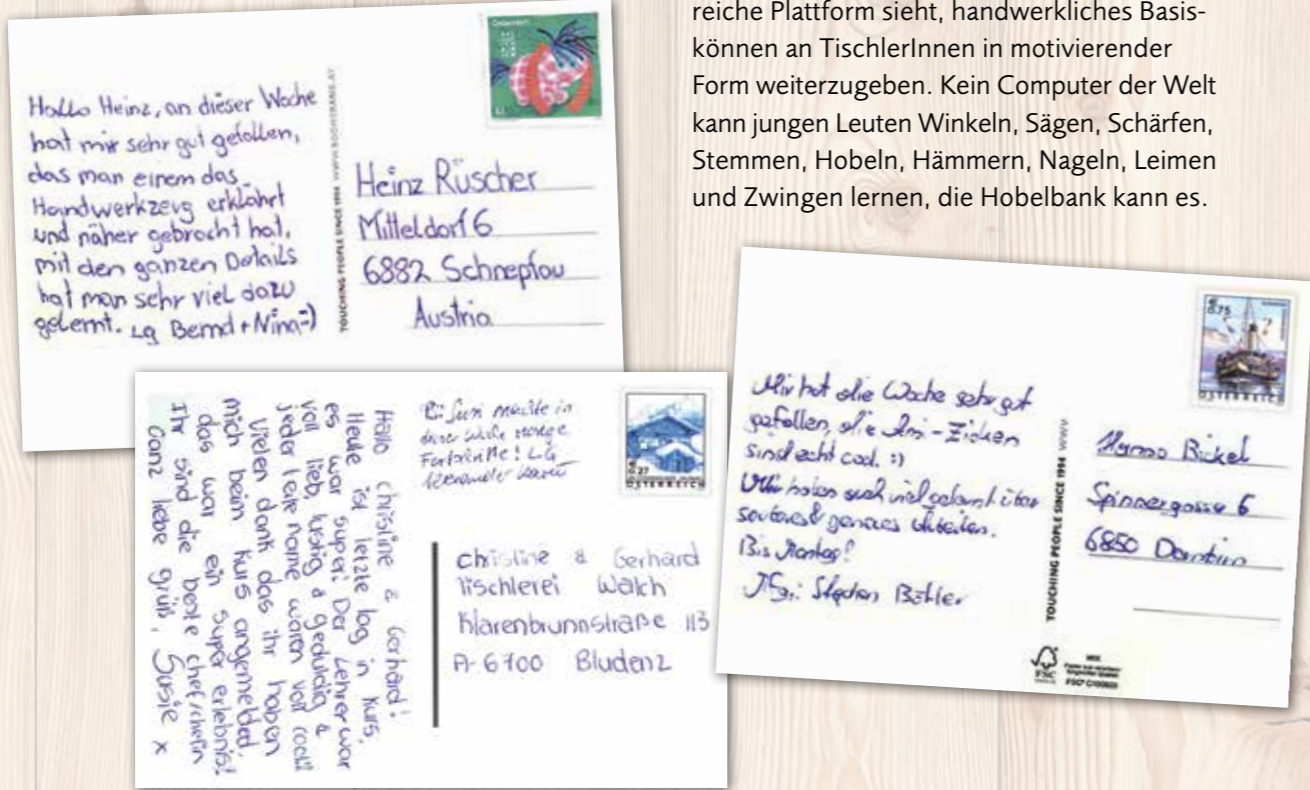 reiche Plattform sieht, handwerkliches Basis-
können an TischlerInnen in motivierender
Form weiterzugeben. Kein Computer der Welt
kann jungen Leuten Winkeln, Sägen, Schärfen,
Stemmen, Hobeln, Hämmern, Nageln, Leimen
und Zwingen lernen, die Hobelbank kann es.
Hallo Heinz, an dieser Woche
hat mir sehr gut gefallen,
das man einem das
Handwerkzeug erklährt
und näher gebracht hat,
mit den ganzen Details
hat man sehr viel dazu
gelernt. Lg Bernd + Nina =)
TOUCHING PEOPLE SINCE 1994 WWW.
Heinz Rüscher
Mitteldorf 6
6882 Schnepfau
Austria
Hallo christine & Gerhard!
Heute ist letzte tag in kurs,
es war super! Der Lehrer war
voll lieb, lustig & geduldig &
jeder leute waren voll cool!
Vielen dank das ihr haben
mich beim kurs angemeldet.
das war ein super erlebnis!
Ihr sind die beste chef/chefin
Ganz liebe grüß, Susie x
Susi machte in
dieser Woche riesige
Fortschritte! LG
0.27
ÖSTERREICH
christine & Gerhard
Tischlerei Walch
Klarenbrunnstraße 113
A-6700 Bludenz
Mir hat die Woche sehr gut
gefallen, die
sind echt cool. :)
Wir haben auch viel gelernt über
sauberes & genaues arbeiten.
Bis Montag!
Mfg: Stefan Böhler
TOUCHING PEOPLE SINCE 1994 WWW
0.75
ÖSTERREICH
Bickel
Spinnergasse 6
6850 Dornbirn
FSC
MIX
FSC®